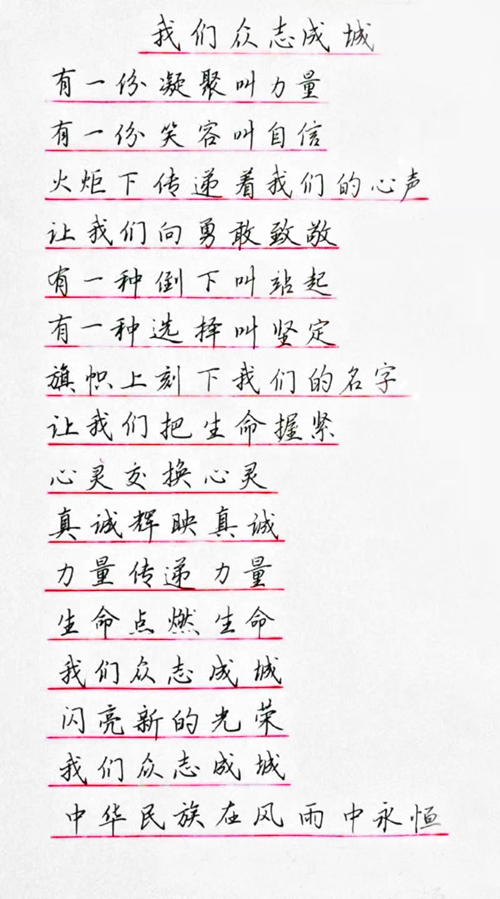 我们众志成城
有一份凝聚叫力量
有一份笑容叫自信
火炬下传递着我们的心声
让我们向勇敢致敬
有一种倒下叫站起
有一种选择叫坚定
旗帜上刻下我们的名字
让我们把生命握紧
心灵交换心灵
真诚辉映真诚
力量传递力量
生命点燃生命
我们众志成城
闪亮新的光荣
我们众志成城
中华民族在风雨中永恒